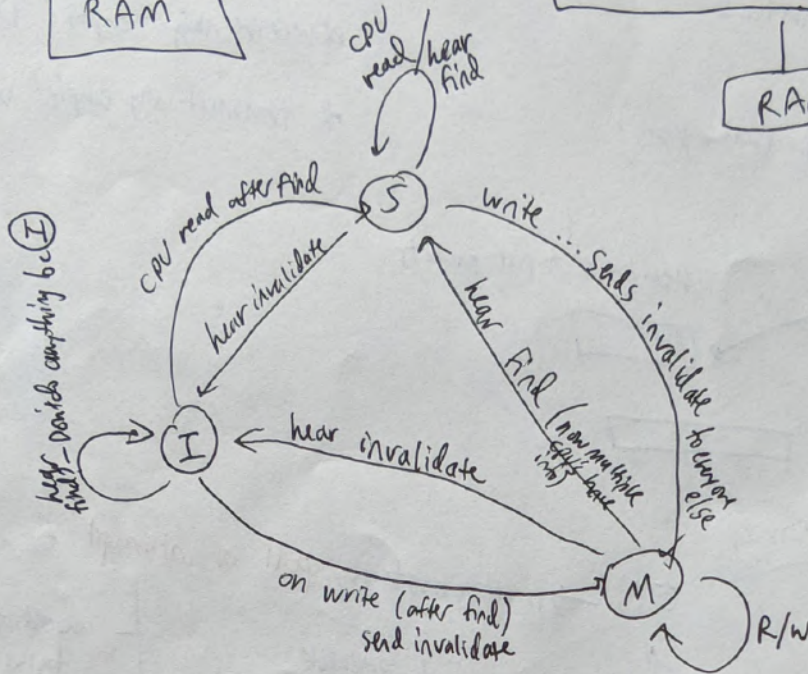 RAM
RA
CPU
read
hear
find
S
CPU read after find
hear invalidate
write ... sends invalidate to everyone
else
hear find (now multiple
info)
hear
find - Don't do anything bc I
I
hear invalidate
on write (after find)
send invalidate
M
R/W